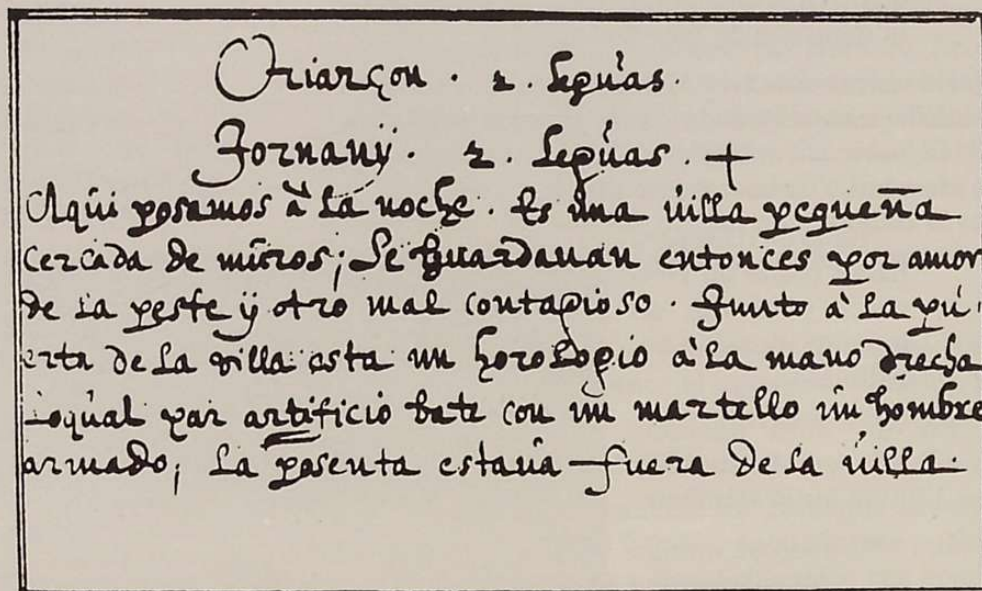 Oriarçon . 2 . leguas .
Jornanÿ . 2 . leguas . +
Aqui posamos à la noche . Es una uilla pequeña
cercada de muros ; Se guardauan entonces por amor
de la peste ÿ otro mal contagioso . Junto à la pu .
erta de la villa esta un horologio à la mano drecha
loqual par artificio bate con un martello un hombre
armado ; la posenta estaua fuera de la uilla .